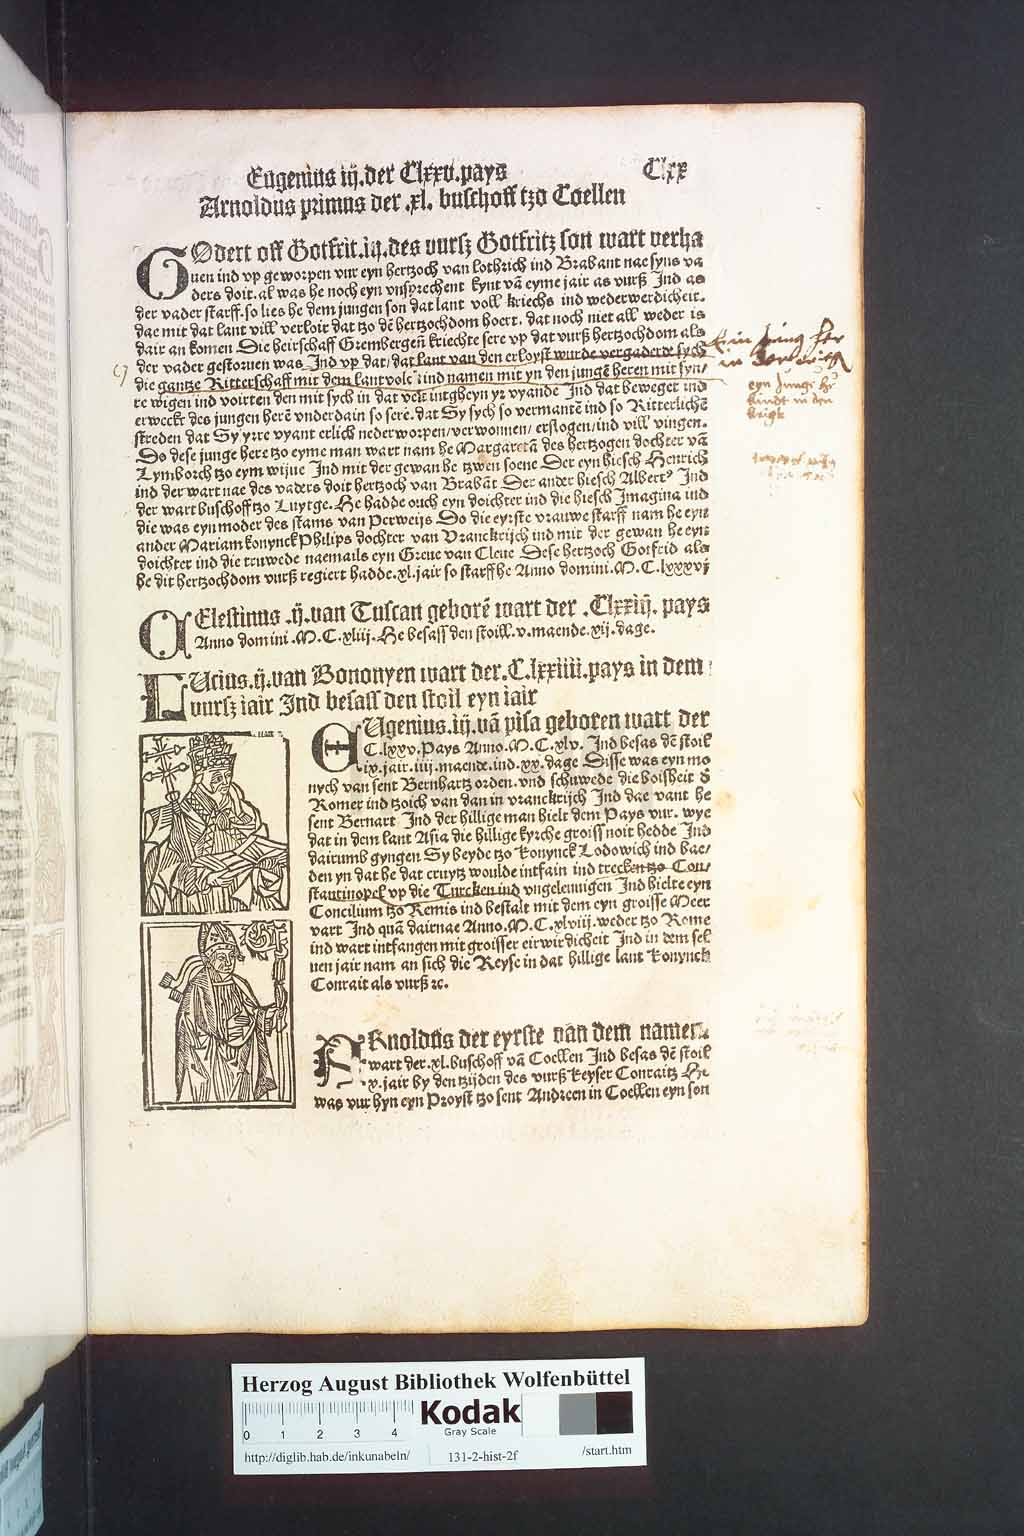 Eugenius iij. der Clxxv. pays
Clxx
Arnoldus primus der .xl. buschoff tzo Coellen
GOdert off Gotfrit .iij. des vursz Gotfritz son wart verha
uen ind vp geworpen vur eyn hertzoch van lothrich ind Brabant nae syns va
ders doit. al was he noch eyn vnsprechent kynt vā eyme jair as vurß Ind as
der vader starff. so lies he dem jungen son dat lant voll kriechs ind wederwerdicheit.
dae mit dat lant vill verloir dat tzo dē hertzochdom hoert. dat noch niet all weder is
dair an komen Die heirschaff Grembergen kriechte sere vp dat vurß hertzochdom als
der vader gestoruen was. Ind vp dat/ dat lant van den erloyst wurde vergaderde sych
die gantze Ritterschaff mit dem lantvolc ind namen mit yn den jungē heren mit syn/
re wigen ind voirten den mit sych in dat velt intgheyn yr vyande Ind dat beweget ind
erweckt des jungen herē vnderdain so sere. dat Sy sych so vermantē ind so Ritterlichē
streden dat Sy yrre vyant erlich nederworpen/ verwonnen/ erslogen/ ind vill vingen.
Do dese junge here tzo eyme man wart nam he Margaretā des hertzogen dochter vā
Lymborch tzo eym wijue Ind mit der gewan he tzwen soene Der eyn hiesch Henrich
ind der wart nae des vaders doit hertzoch van Brabāt Der ander hiesch Albert9 Ind
der wart buschoff tzo Luytge. He hadde ouch eyn doichter ind die hiesch Imagina ind
die was eyn moder des stams van Perweijs Do die eyrste vrauwe starff nam he eyn
ander Mariam konynck Philips dochter van Vranckrijch ind mit der gewan he eyn
doichter ind die truwede naemails eyn Greue van Cleue Dese hertzoch Gotfrid als
he dit hertzochdom vurß regiert hadde .xl. jair so starff he Anno domini .M.C.lxxxvj
CElestinus .ij. van Tuscan geborē wart der .Clxxiij. pays
Anno domini .M.C.xliij. He besass den stoill. v. maende. xij. dage.
LUcius .ij. van Bononyen wart der .C.lxxiiii. pays in dem
vursz iair Ind besass den stoil eyn iair
EUgenius .iij. vā pisa geboren watt der
C.lxxv. Pays Anno .M.C.xlv. Ind besas dē stoil
ix. jair. iiij. maende. ind .xx. dage Disse was eyn mo
nych van sent Bernhartz orden. vnd schuwede die boisheit d
Romer ind tzoich van dan in vranckrijch Ind dae vant he
sent Bernart Ind der hillige man hielt dem Pays vur. wye
dat in dem lant Asia die hillige kyrche groiss noit hedde Ind
dairumb gyngen Sy beyde tzo konynck Lodowich ind bae/
den yn dat he dat cruytz woulde intfain ind trecken tzo Con/
stantinopel vp die Turcken ind vngeleuuigen Ind hielte eyn
Concilium tzo Remis ind bestalt mit dem eyn groisse Meer
vart Ind quā dairnae Anno .M.C.xlviii. weder tzo Rome
ind wart intfangen mit groisser eirwirdicheit Ind in dem sel
uen jair nam an sich die Reyse in dat hillige lant konynck
Conrait als vurß ꝛc.
ARnoldus der eyrste van dem namen.
wart der .xl. buschoff vā Coellen Ind besas dē stoil
x. jair by den tzijden des vurß keyser Conraitz He
was vur hyn eyn Proyst tzo sent Andreen in Coellen eyn son
eyn Junge
kindt in den
krigk
Herzog August Bibliothek Wolfenbüttel
0 1 2 3 4
Kodak
Gray Scale
http://diglib.hab.de/inkunabeln/ 131-2-hist-2f /start.htm